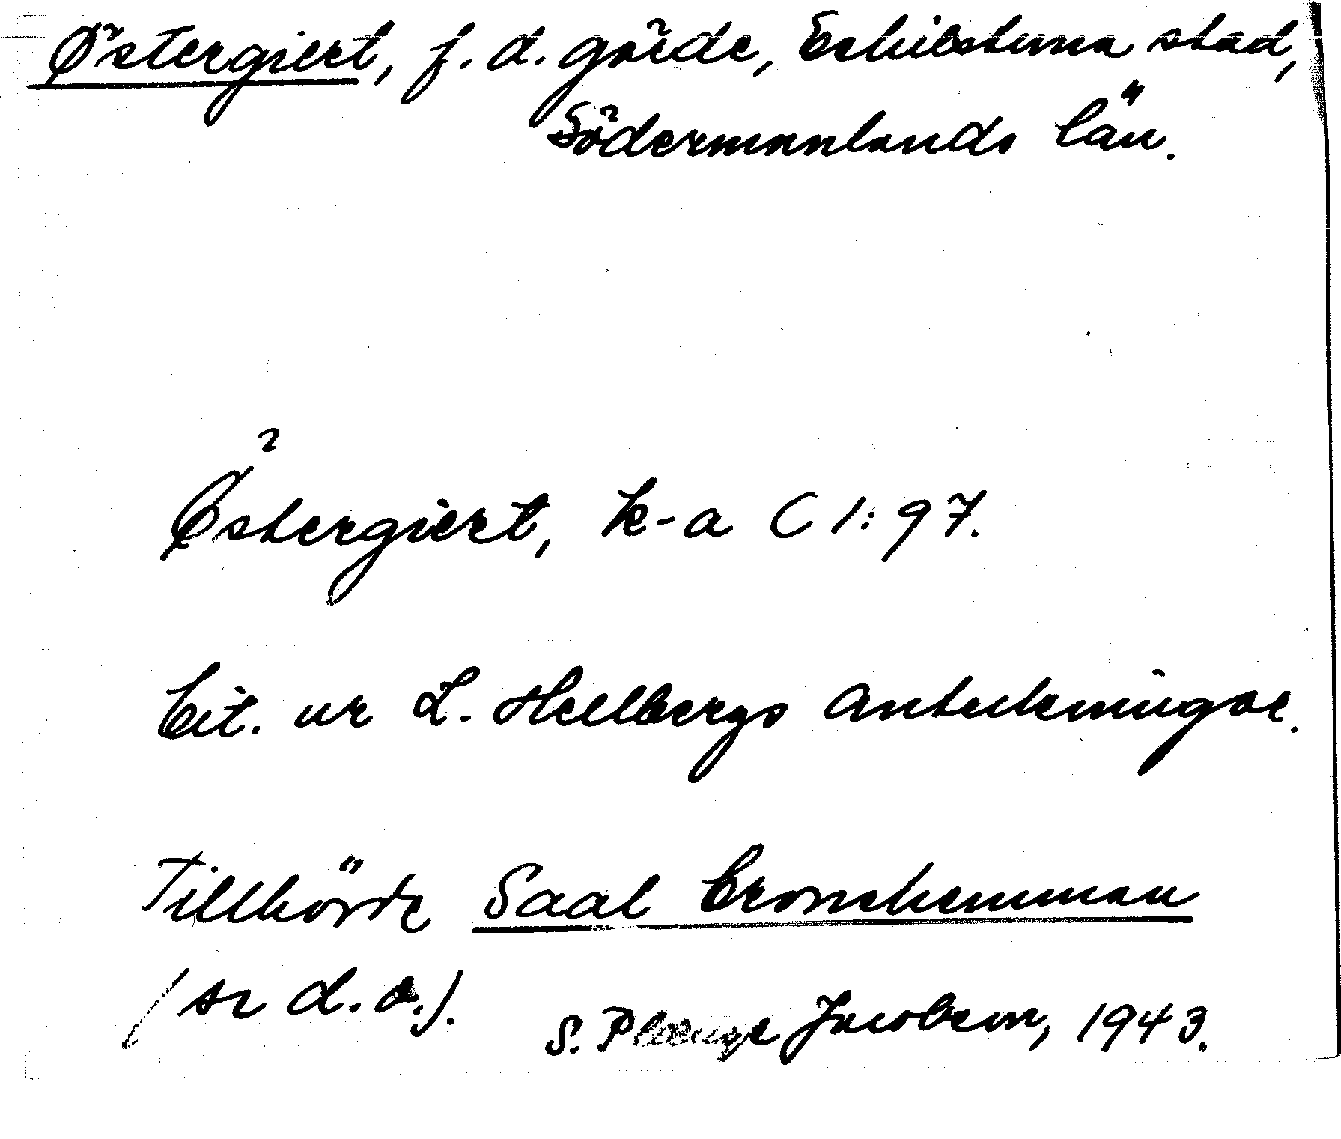 Østergiert, f. d. gärde, Eskilstuna stad,
Södermanlands län.
Østergiert, k-a C 1: 97.
Cit. ur L. Hellbergs anteckningar.
Tillhörde Saal Cronehemman
(se d. o.).
S. Plænge Jacobson, 1943.